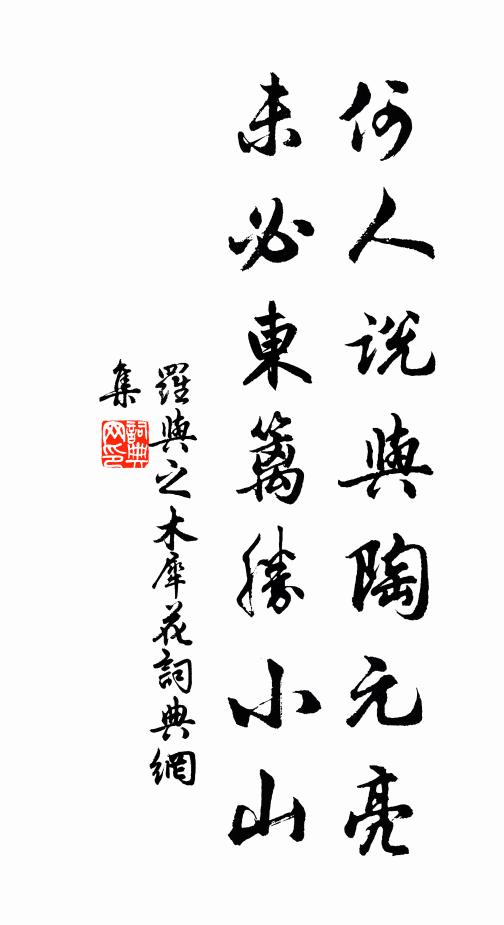 何人説與陶元亮
未必東籬勝小山
羅與之木犀花詞典網
集
詞典网印